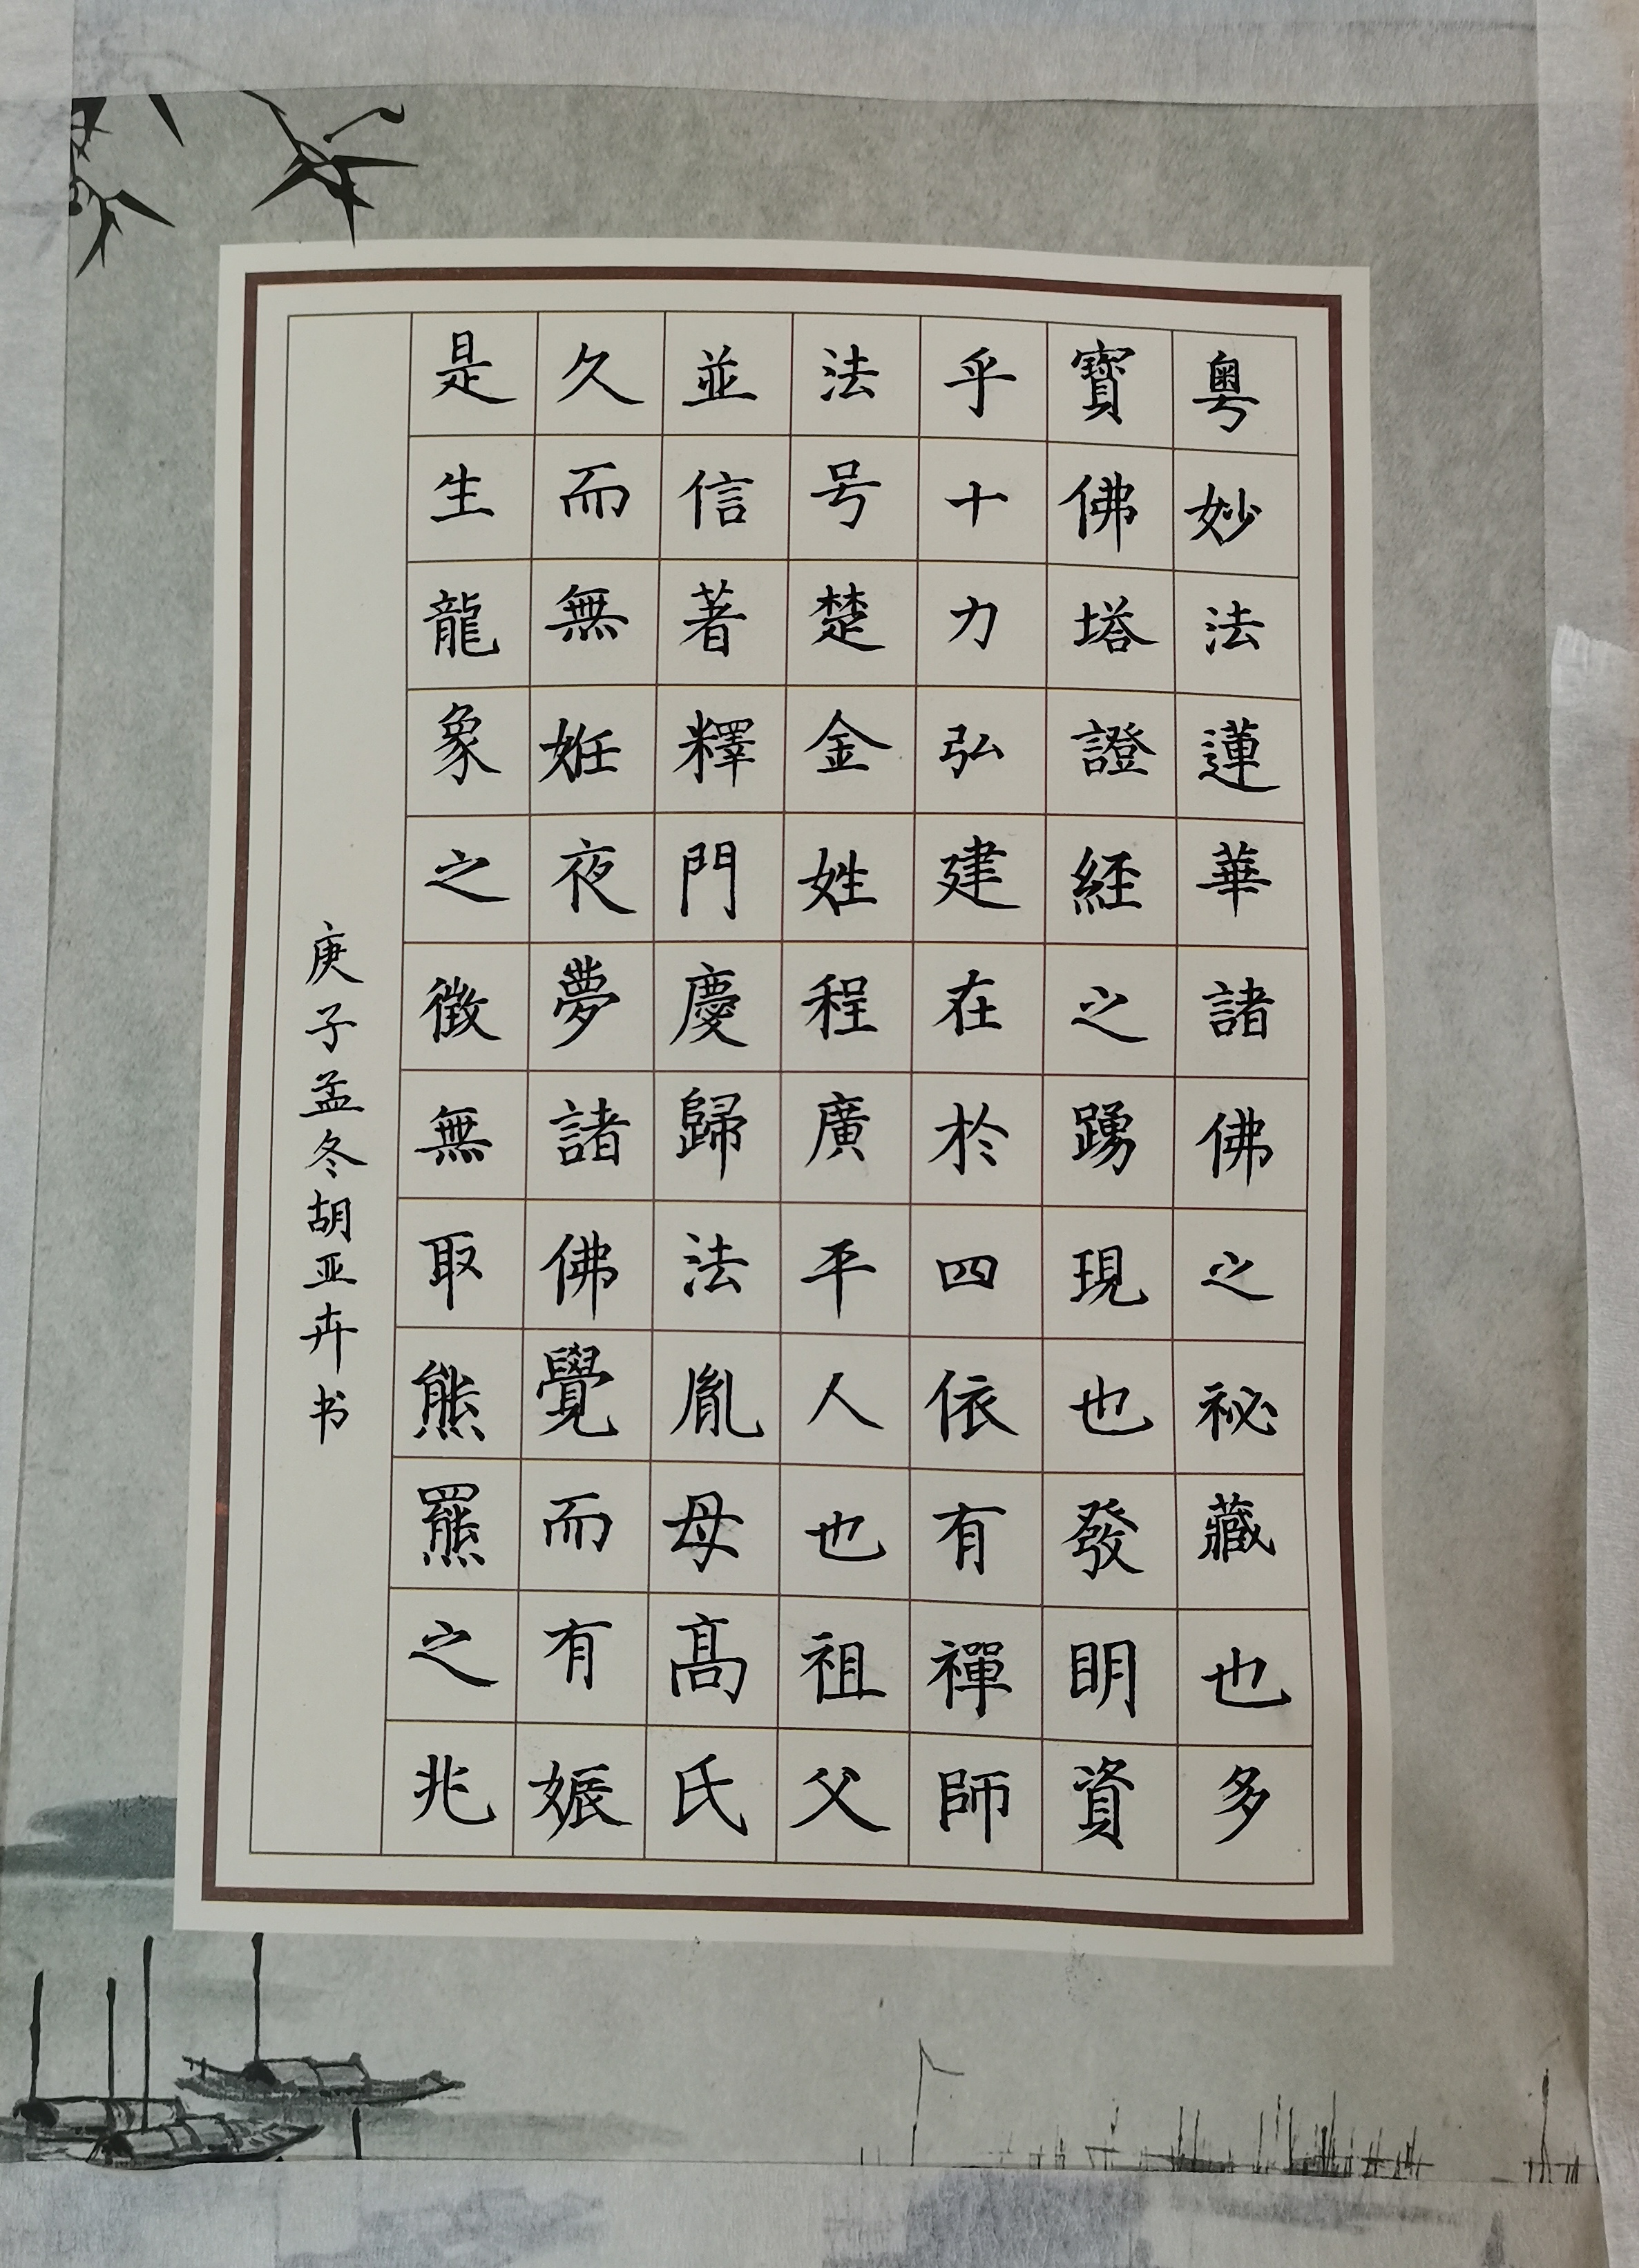 粵妙法蓮華諸佛之祕藏也多
寶佛塔證經之踴現也發明資
乎十力弘建在於四依有禪師
法号楚金姓程廣平人也祖父
並信著釋門慶歸法胤母高氏
久而無姙夜夢諸佛覺而有娠
是生龍象之徵無取熊羆之兆
庚子孟冬胡亚卉书